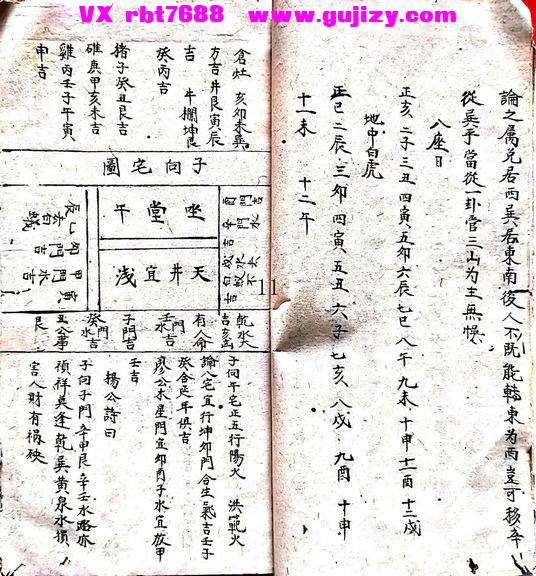 VX rbt7688 www.gujizy.com
論之属兌居西巽居東南後人不既能轉東为西豈可移辛
從巽乎當從一卦管三山为主無惧
八座日
正亥二子三丑四寅五卯六辰七巳八午九未十申十一酉十二戌
地中白虎
正巳二辰三卯四寅五丑六子七亥八戌九酉十申
十一未十二午
倉灶亥卯未巽
方吉井艮寅辰
吉牛棚坤艮
癸丙吉
猪子癸丑艮吉
碓庚甲亥未吉
雞丙壬子午寅
申吉
子向宅圖
坐堂干
天井宜浅
乾水大
吉亥凶
有人命
壬門水吉
子門吉
癸門水吉
艮
11
子向午宅正五行陽火洪範火
論八宅宜行坤卯門合生氣吉壬子
癸合延年俱吉
廖公未星門宜卯酉子水宜放甲
壬吉
楊公詩曰
子向子門辛甲艮辛壬水路亦
禎祥莫逢乾巽黄泉水損
害人財有禍殃